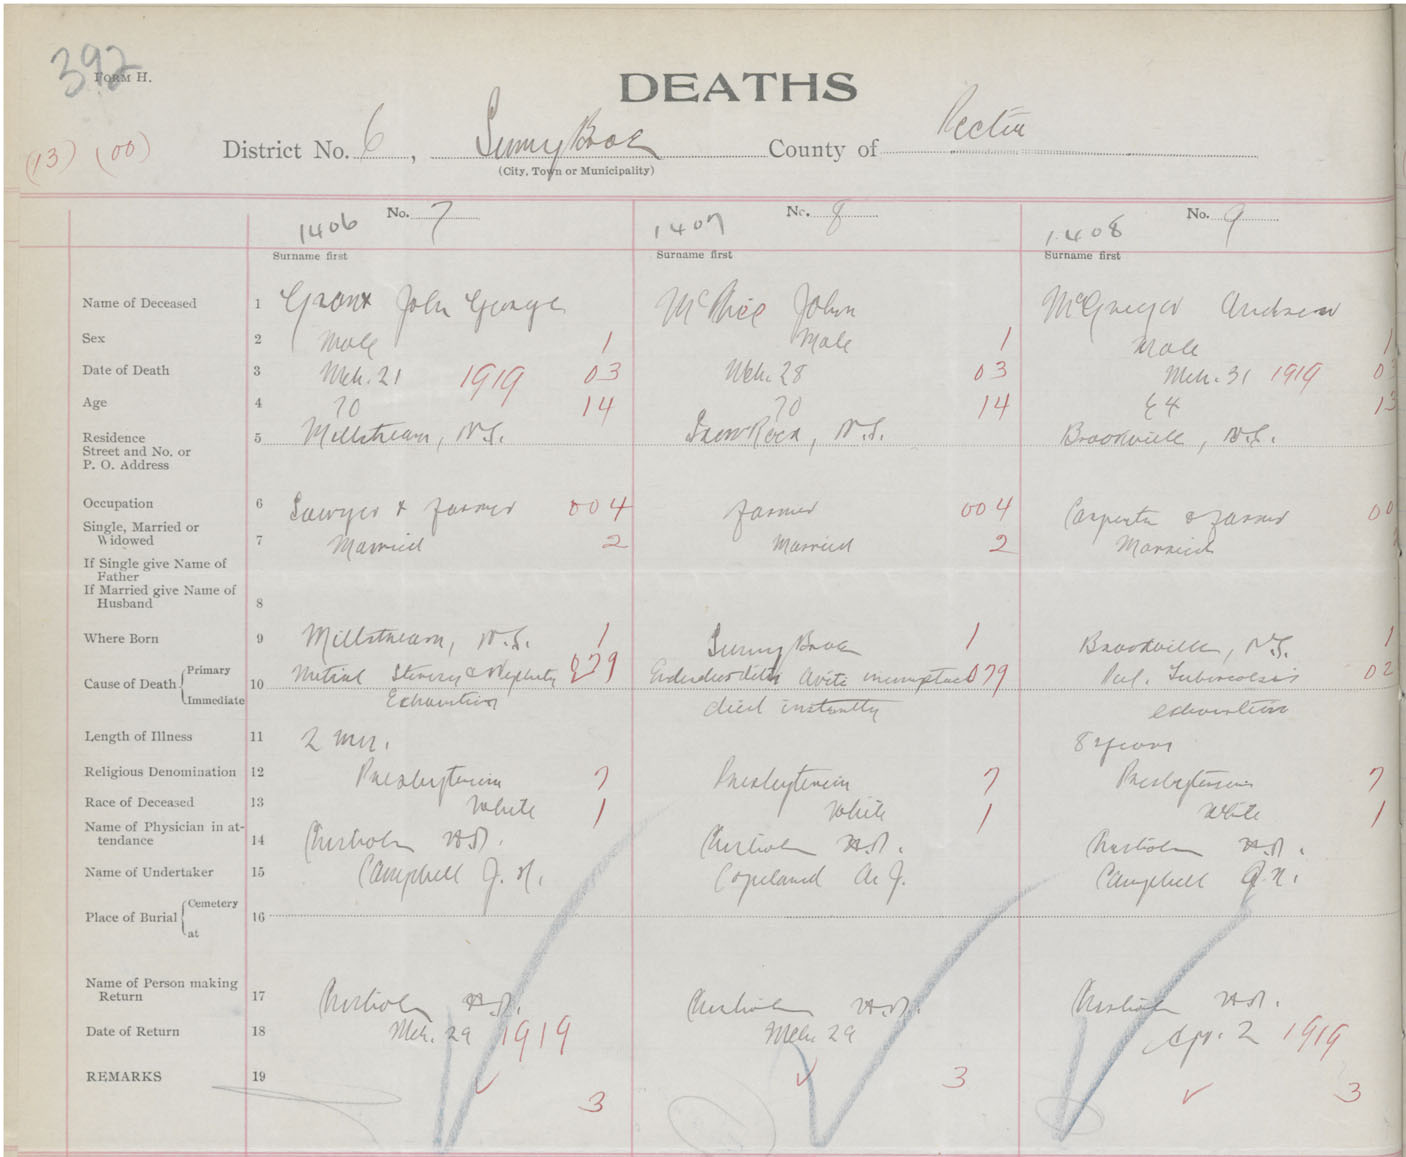 392
FORM H.
DEATHS
(13) (00)
District No. 6, Sunny Brae County of Pictou
(City, Town or Municipality)
1406 No. 7 1407 No. 8 1408 No. 9
Surname first Surname first Surname first
Name of Deceased 1 Grant John George McPhee John McGregor Andrew
Sex 2 Male 1 Male 1 Male 1
Date of Death 3 Mch. 21 1919 03 Mch. 28 03 Mch. 31 1919 03
Age 4 70 14 70 14 64 13
Residence
Street and No. or 5 Millstream, N.S. N.S. Brookville, N.S.
P. O. Address
Occupation 6 Sawyer & farmer 004 farmer 004 Carpenter & farmer 00
Single, Married or
Widowed 7 Married 2 Married 2 Married
If Single give Name of
Father
If Married give Name of
Husband 8
Where Born 9 Millstream, N.S. 1 Sunny Brae 1 Brookville, N.S. 1
Primary
Cause of Death 10 Mitral 079 079 Pul. Tuberculosis 02
Immediate Exhaustion died instantly exhaustion
Length of Illness 11 2 8 years
Religious Denomination 12 Presbyterian 7 Presbyterian 7 Presbyterian 7
Race of Deceased 13 White 1 White 1 White 1
Name of Physician in at-
tendance 14 Chisholm H.D. Chisholm H.D. Chisholm H.D.
Name of Undertaker 15 Campbell J. N. Copeland A. J. Campbell J. N.
Cemetery
Place of Burial 16
at
Name of Person making
Return 17 Chisholm H.D. Chisholm H.D. Chisholm H.D.
Date of Return 18 Mch. 29 1919 Mch. 29 Apr. 2 1919
REMARKS 19
3 3 3